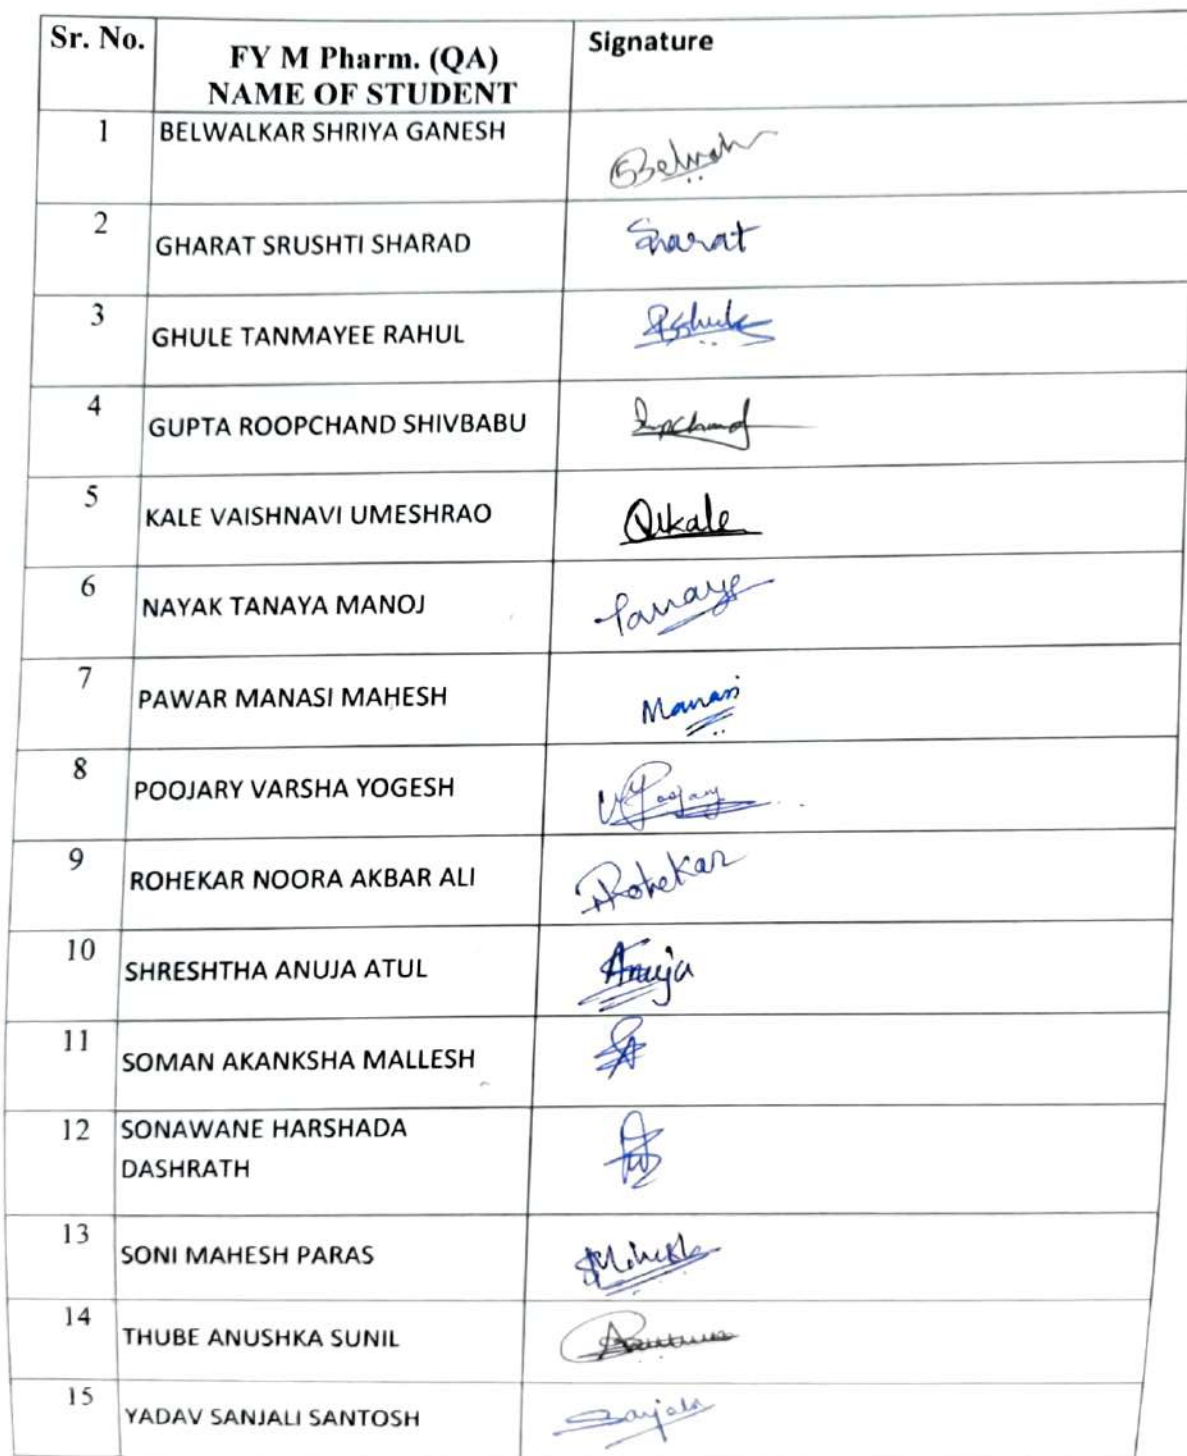 Sr. No.
FY M Pharm. (QA)
NAME OF STUDENT
Signature
1 BELWALKAR SHRIYA GANESH
2 GHARAT SRUSHTI SHARAD Gharat
3 GHULE TANMAYEE RAHUL
4 GUPTA ROOPCHAND SHIVBABU
5 KALE VAISHNAVI UMESHRAO
6 NAYAK TANAYA MANOJ Tanaya
7 PAWAR MANASI MAHESH Manasi
8 POOJARY VARSHA YOGESH VYPoojary
9 ROHEKAR NOORA AKBAR ALI NRohekar
10 SHRESHTHA ANUJA ATUL Anuja
11 SOMAN AKANKSHA MALLESH
12 SONAWANE HARSHADA
DASHRATH
13 SONI MAHESH PARAS
14 THUBE ANUSHKA SUNIL
15 YADAV SANJALI SANTOSH Sanjali